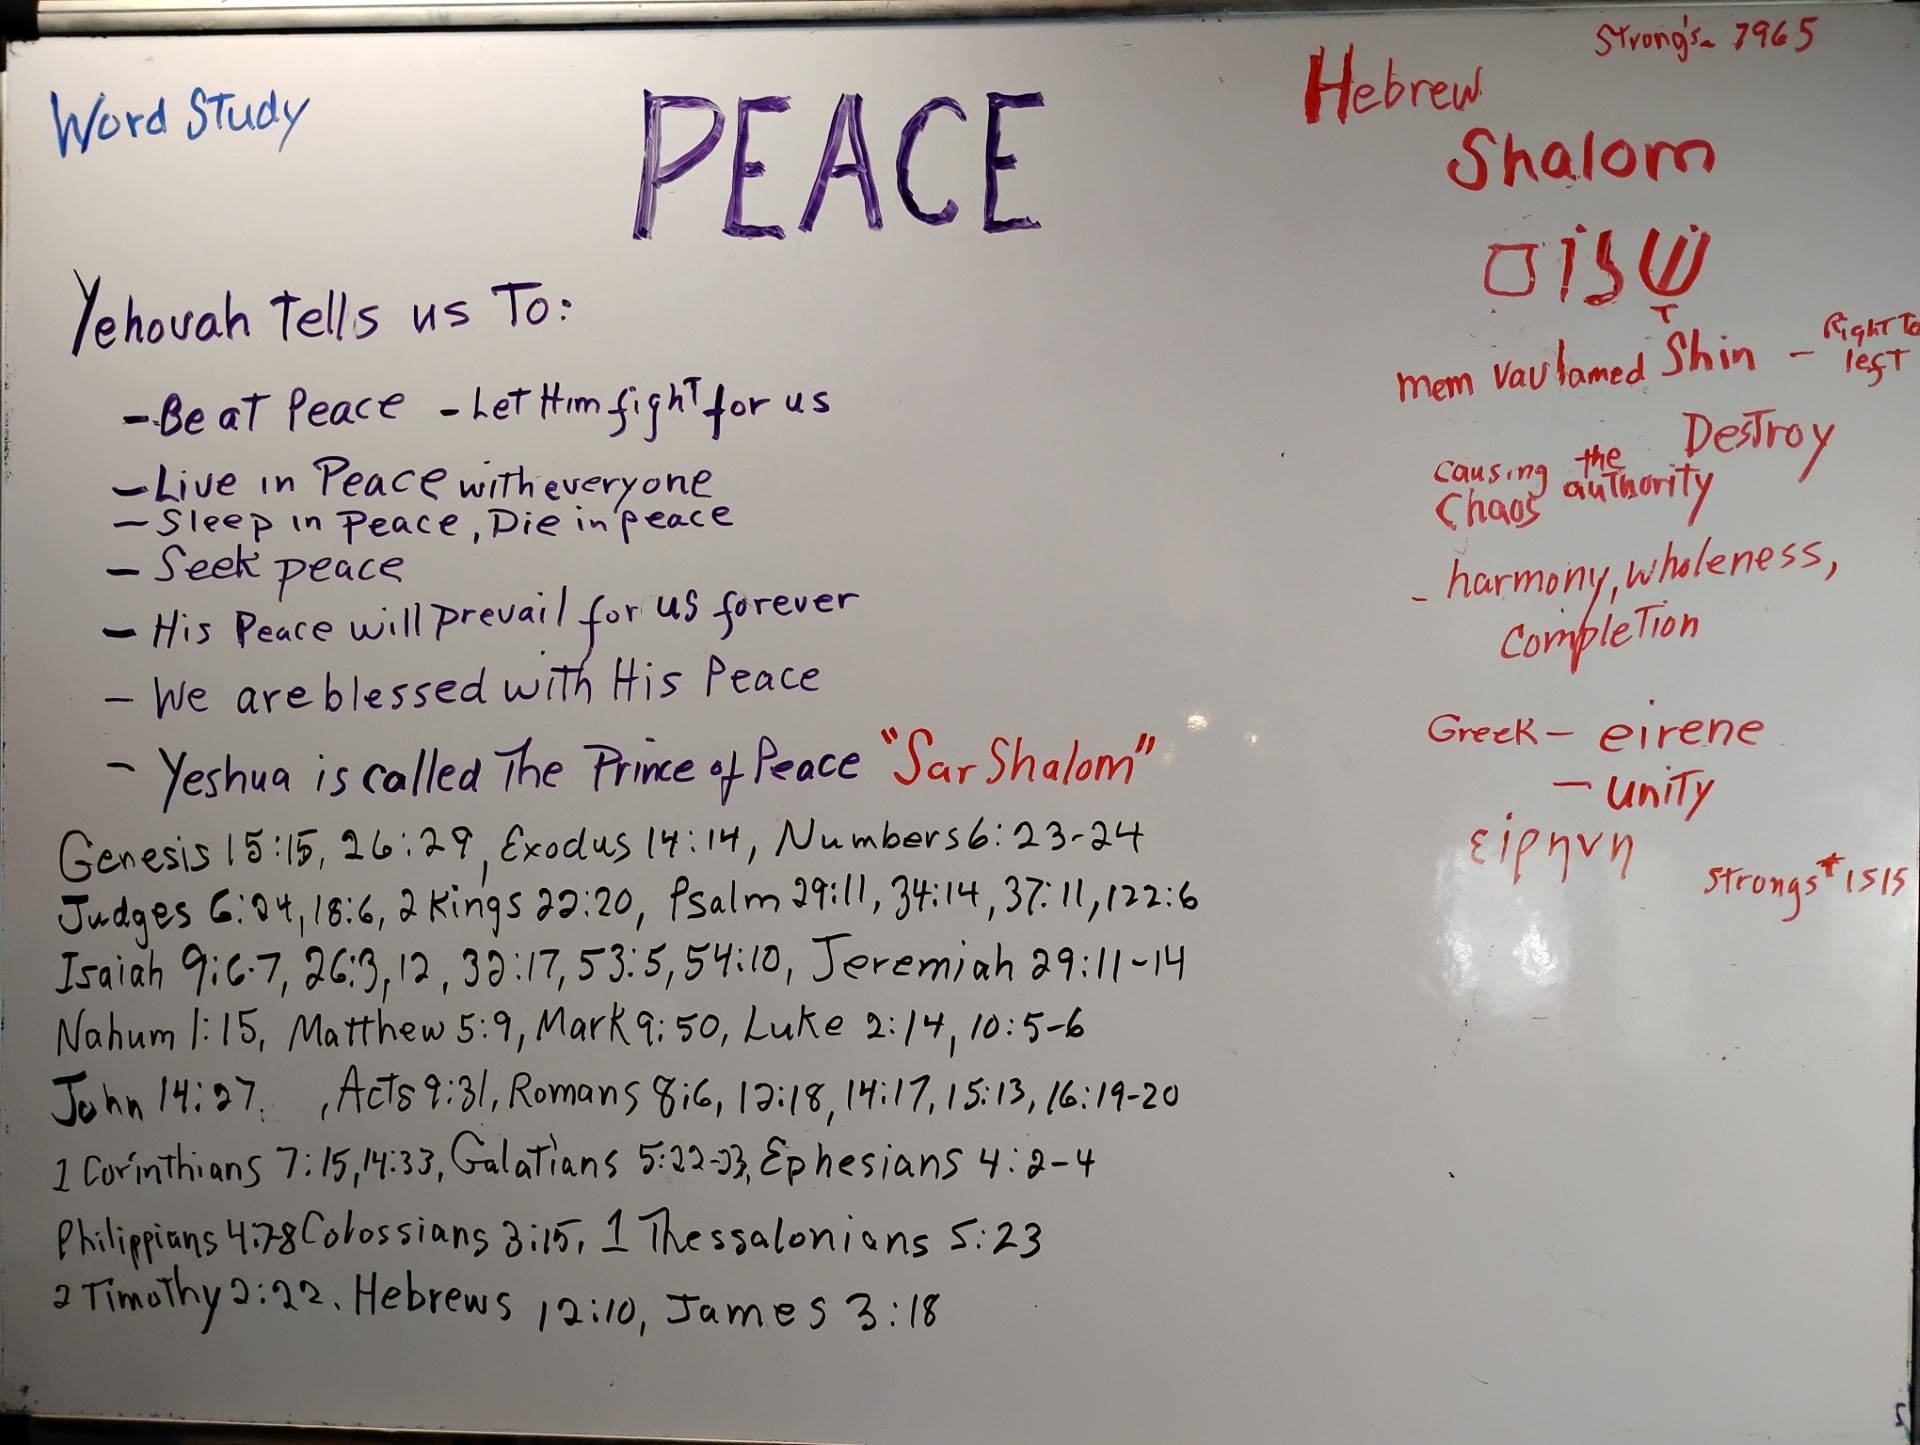 Word Study
PEACE
Yehovah Tells us To:
- Be at Peace - Let Him fight for us
- Live in Peace with everyone
- Sleep in peace, Die in peace
- Seek peace
- His Peace will prevail for us forever
- We are blessed with His Peace
- Yeshua is called The Prince of Peace "Sar Shalom"
Genesis 15:15, 26:29, Exodus 14:14, Numbers 6:23-24
Judges 6:24, 18:6, 2 Kings 22:20, Psalm 29:11, 34:14, 37:11, 122:6
Isaiah 9:6-7, 26:3, 12, 32:17, 53:5, 54:10, Jeremiah 29:11-14
Nahum 1:15, Matthew 5:9, Mark 9:50, Luke 2:14, 10:5-6
John 14:27. , Acts 9:31, Romans 8:6, 12:18, 14:17, 15:13, 16:19-20
1 Corinthians 7:15, 14:33, Galatians 5:22-23, Ephesians 4:2-4
Philippians 4:7-8 Colossians 3:15, 1 Thessalonians 5:23
2 Timothy 2:22. Hebrews 12:10, James 3:18
Strong's - 7965
Hebrew
Shalom
שָׁלוֹם
mem vav lamed Shin - Right To left
Destroy
the authority
causing Chaos
- harmony, wholeness,
completion
Greek - eirene
- unity
εiρηνη
Strongs # 1515